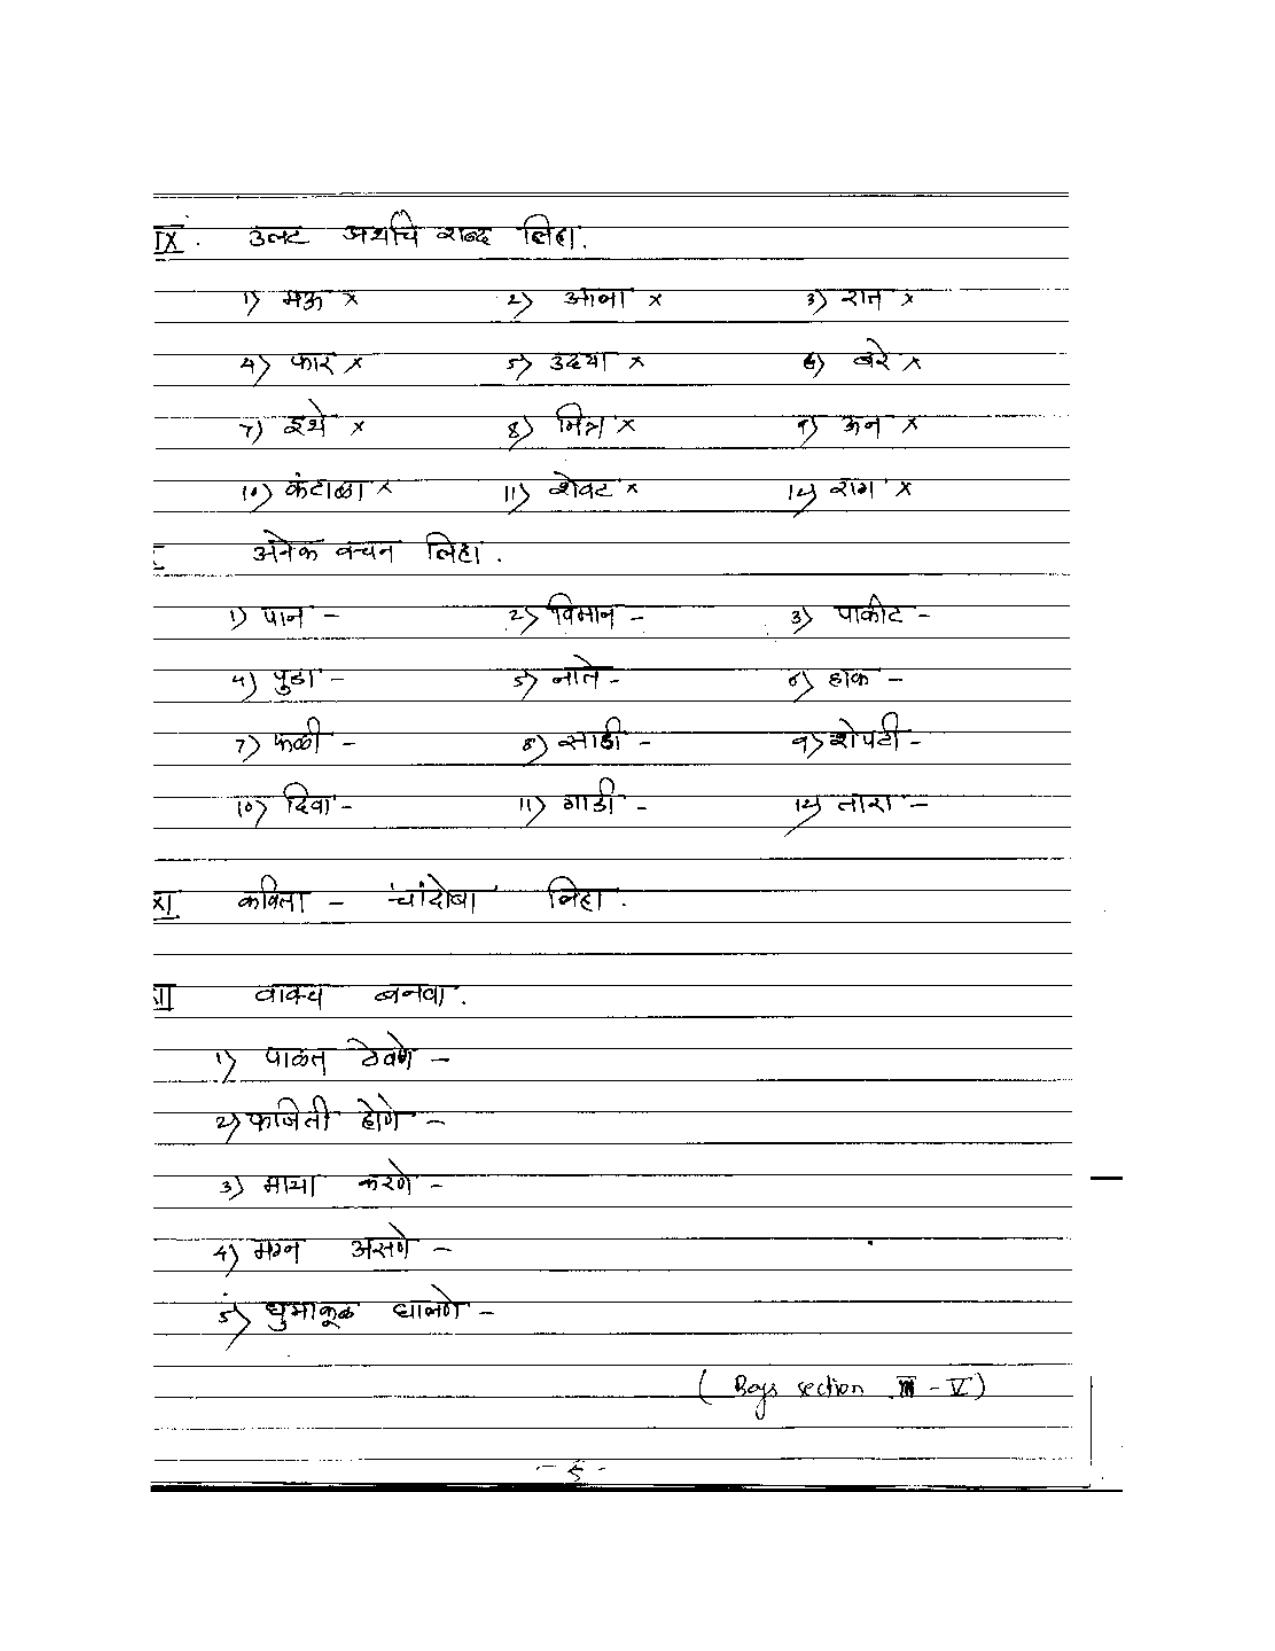 IX. उलट अर्थाचे शब्द लिहा.
1) मऊ x 2) आला x 3) रात x
4) फार x 5) उदया x 6) बरे x
7) इथे x 8) मित्र x 9) ऊन x
10) कंटाळा x 11) शेवट x 12) राग x
अनेक वचन लिहा.
1) पान - 2) विमान - 3) पाकीट -
4) पुडा - 5) नाते - 6) हाक -
7) कळी - 8) साडी - 9) शेपटी -
10) दिवा - 11) गाडी - 12) तारा -
XI कविता - चांदोबा लिहा.
XII वाक्य बनवा.
1) पाळत ठेवणे -
2) फजिती होणे -
3) माया करणे -
4) मग्न असणे -
5) धुमाकूळ घालणे -
( Boys section III - V )
- 5 -